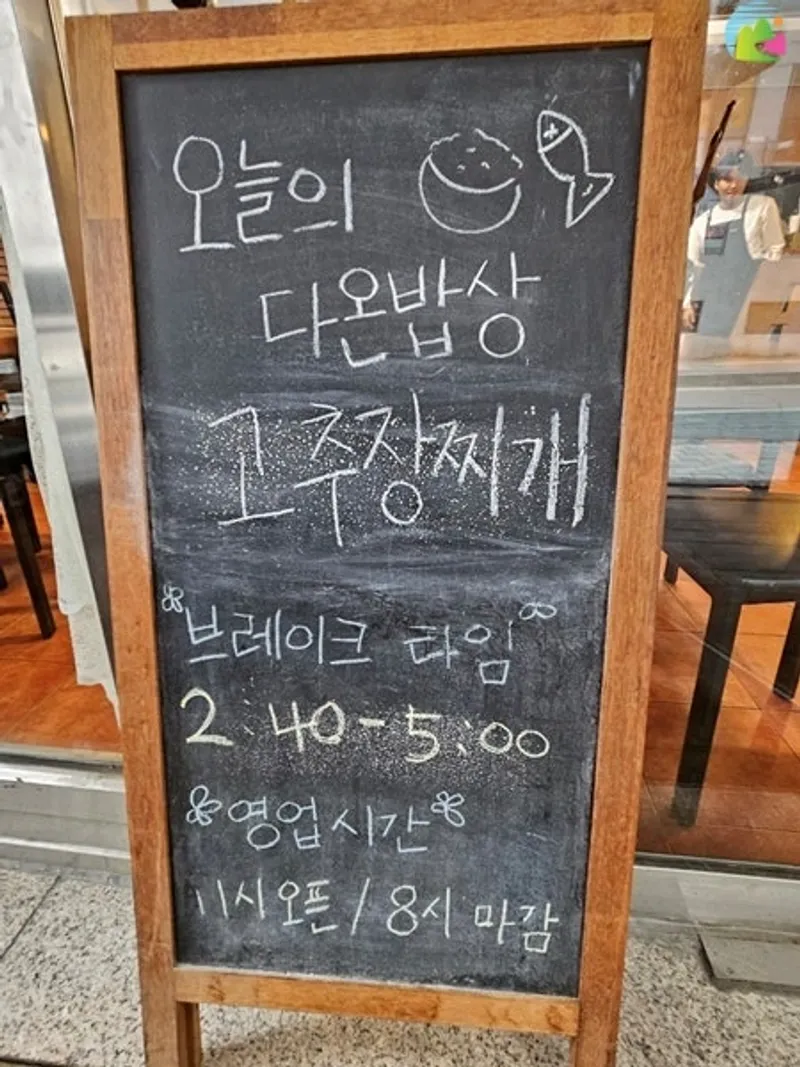 오늘의
다온밥상
고추장찌개
브레이크 타임
2:40-5:00
영업시간
11시 오픈 / 8시 마감